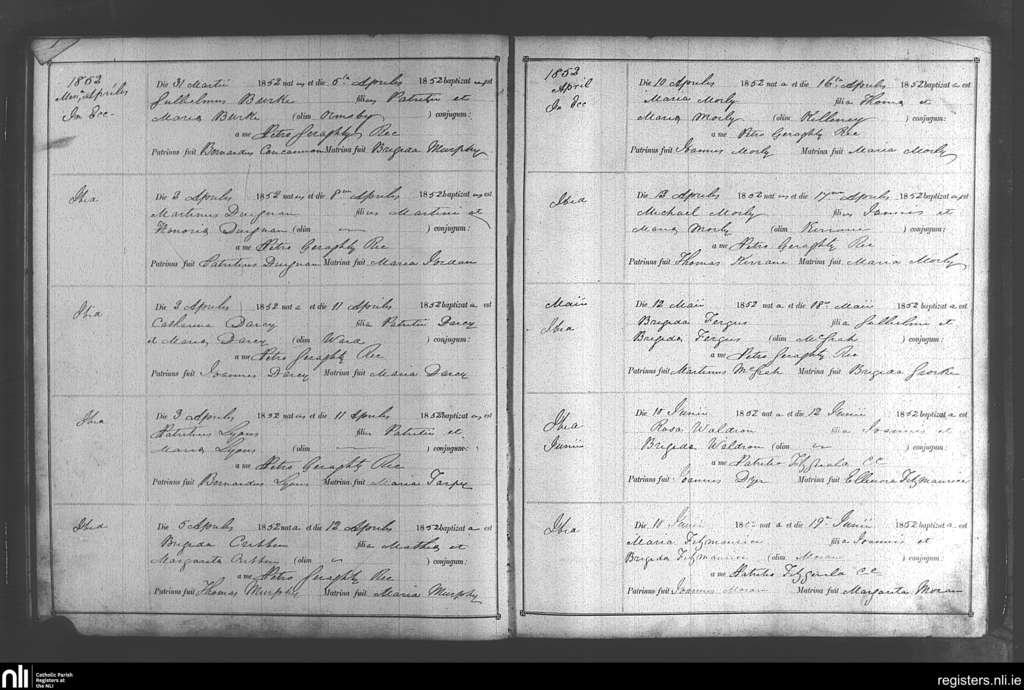 1852
Mens. Aprilis
In Ecc
Die 31 Martii 1852 nat us et die 5ta Aprilis 1852 baptizat us est
Gulhelmus Burke filius Patritii et
Maria Burke (olim Ormsby ) conjugum:
a me Petro Geraghty Rec
Patrinus fuit Bernardus Concannon Matrina fuit Brigida Murphy
Ibid
Die 2 Aprilis 1852 nat us et die 8va Aprilis 1852 baptizat us est
Martinus Duignan filius Martini et
Honoria Duignan (olim ) conjugum:
a me Petro Geraghty Rec
Patrinus fuit Patritius Duignan Matrina fuit Maria Jordan
Ibid
Die 3 Aprilis 1852 nat a et die 11 Aprilis 1852 baptizat a est
Catharina Darcy filia Patritii Darcy
et Maria Darcy (olim Ward ) conjugum:
a me Petro Geraghty Rec
Patrinus fuit Joannes Darcy Matrina fuit Maria Darcy
Ibid
Die 3 Aprilis 1852 nat us et die 11 Aprilis 1852 baptizat us est
Patritius Lyons filius Patritii et
Maria Lyons (olim ) conjugum:
a me Petro Geraghty Rec
Patrinus fuit Bernardus Lyons Matrina fuit Maria Tarpy
Ibid
Die 5 Aprilis 1852 nat a et die 12 Aprilis 1852 baptizat a est
Brigida Cribben filia Mathei et
Margarita Cribben (olim ) conjugum:
a me Petro Geraghty Rec
Patrinus fuit Thomas Murphy Matrina fuit Maria Murphy
1852
April
In Ecc
Die 10 Aprilis 1852 nat a et die 16ta Aprilis 1852 baptizat a est
Maria Morly filia Thoma et
Maria Morly (olim Killeney ) conjugum:
a me Petro Geraghty Rec
Patrinus fuit Joannes Morly Matrina fuit Maria Morly
Ibid
Die 13 Aprilis 1852 nat us et die 17ma Aprilis 1852 baptizat us est
Michael Morly filius Joannis et
Maria Morly (olim Kirrane ) conjugum:
a me Petro Geraghty Rec
Patrinus fuit Thomas Kirrane Matrina fuit Maria Morly
Maii
Ibid
Die 12 Maii 1852 nat a et die 18va Maii 1852 baptizat a est
Brigida Fergus filia Gulhelmi et
Brigida Fergus (olim McGrath ) conjugum:
a me Petro Geraghty Rec
Patrinus fuit Martinus McGrath Matrina fuit Brigida
Ibid
Junii
Die 10 Junii 1852 nat a et die 12 Junii 1852 baptizat a est
Rosa Waldron filia Joannis et
Brigida Waldron (olim ) conjugum:
a me Patritio Fitzgerald C.C.
Patrinus fuit Joannes Dyer Matrina fuit Ellenora Fitzmaurice
Ibid
Die 11 Junii 1852 nat a et die 19a Junii 1852 baptizat a est
Maria Fitzmaurice filia Joannis et
Brigida Fitzmaurice (olim Moran ) conjugum:
a me Patritio Fitzgerald C.C.
Patrinus fuit Joannes Moran Matrina fuit Margarita Moran
nli Catholic Parish
Registers at
the NLI
registers.nli.ie